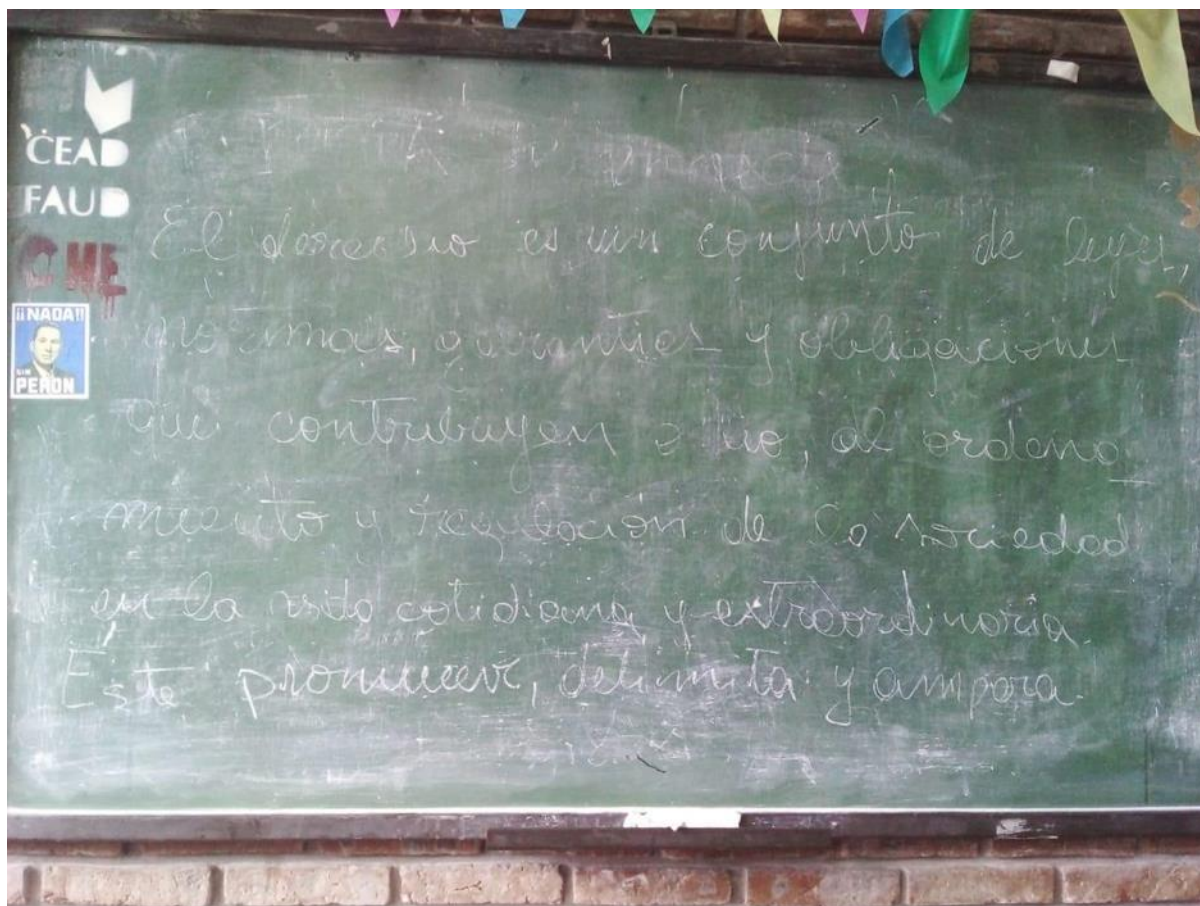 CEAD
FAUD
CHE
¡¡NADA!!
SIN
PERON
El derecho es un conjunto de leyes,
normas, garantías y obligaciones
que contribuyen o no, al ordena
miento y regulación de la sociedad
en la vida cotidiana y extraordinaria.
Este promueve, delimita y ampara